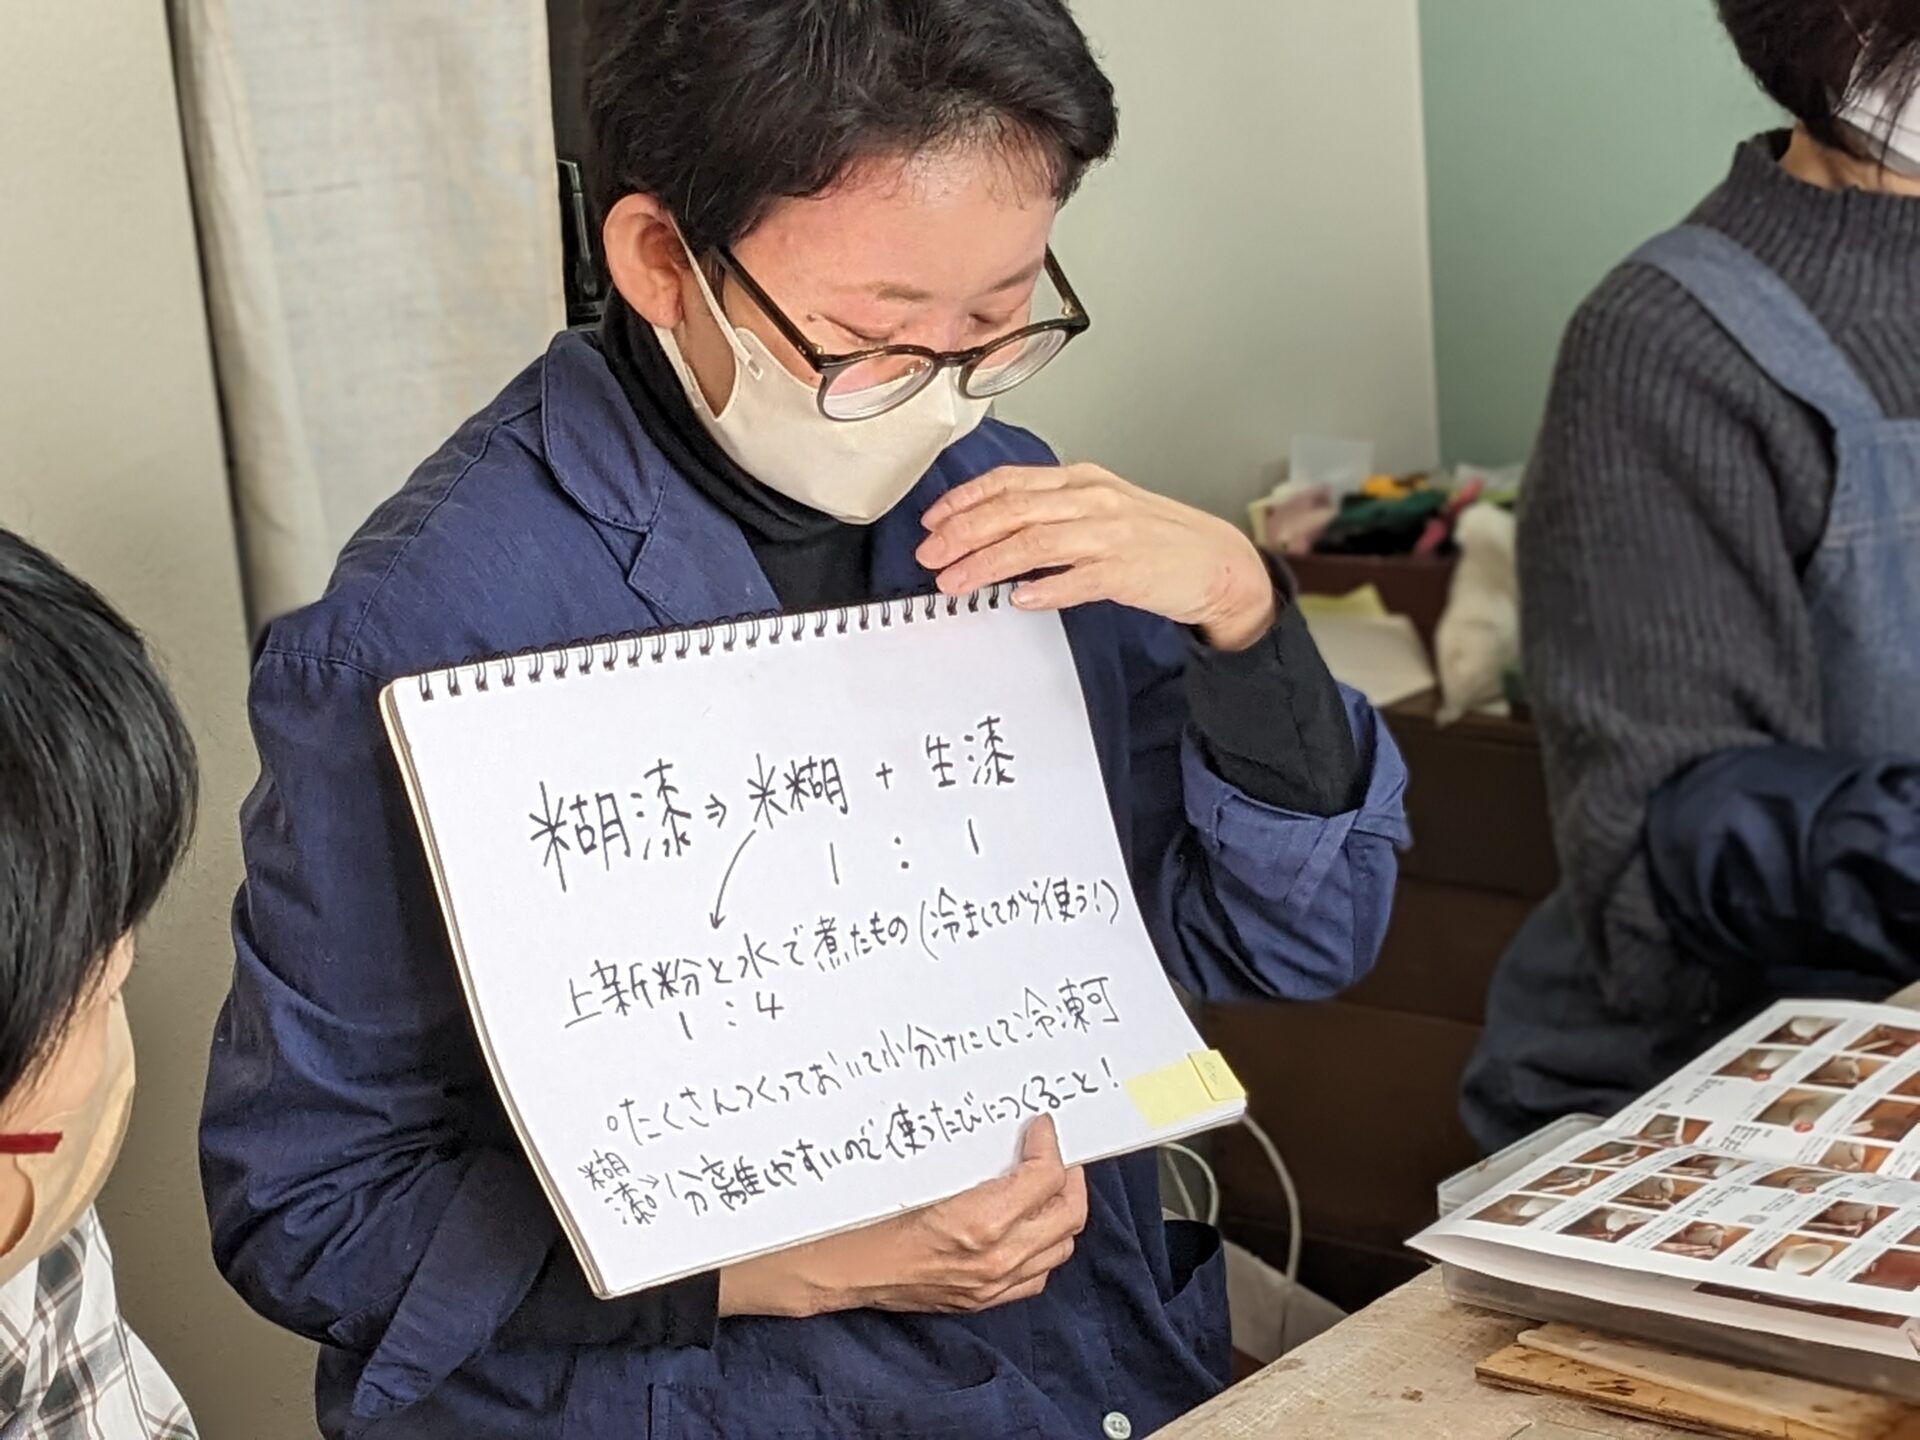 糊漆⇒米糊+生漆
1:1
上新粉と水で煮たもの(冷ましてから使う!)
1:4
○たくさんつくっておいて小分けにして冷凍可
糊漆○→分離しやすいので使うたびにつくること!